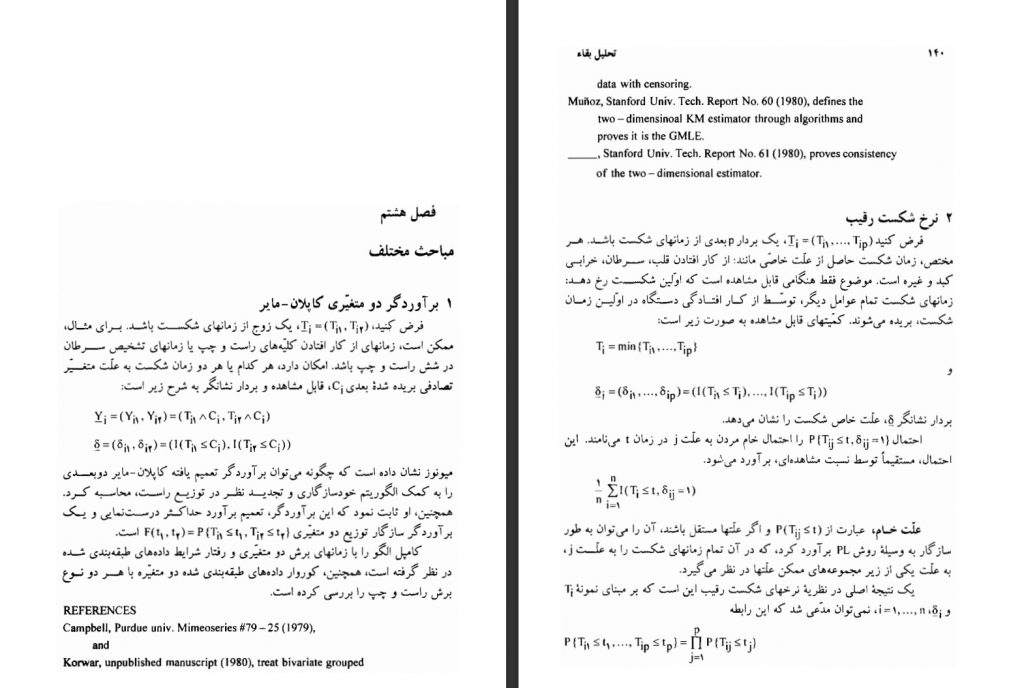 فصل هشتم
مباحث مختلف
۱ برآوردگر دو متغیّری کاپلان-مایر
فرض کنید، T̲i = (Ti۱, Ti۲)، یک زوج از زمانهای شکست باشد. برای مثال،
ممکن است، زمانهای از کار افتادن کلیّه‌های راست و چپ یا زمانهای تشخیص سرطان
در شش راست و چپ باشد. امکان دارد، هر کدام یا هر دو زمان شکست به علّت متغیّر
تصادفی بریده شدهٔ بعدی Ci، قابل مشاهده و بردار نشانگر به شرح زیر است:
Y̲i = (Yi۱, Yi۲) = (Ti۱ ∧ Ci, Ti۲ ∧ Ci)
δ̲ = (δi۱, δi۲) = (I(Ti۱ ≤ Ci), I(Ti۲ ≤ Ci))
میونوز نشان داده است که چگونه می‌توان برآوردگر تعمیم یافته کاپلان-مایر دوبعدی
را به کمک الگوریتم خودسازگاری و تجدید نظر در توزیع راست، محاسبه کرد.
همچنین، او ثابت نمود که این برآوردگر، تعمیم برآورد حداکثر درست‌نمایی و یک
برآوردگر سازگار توزیع دو متغیّری F(t۱, t۲) = P{Ti۱ ≤ t۱, Ti۲ ≤ t۲} است.
کامپل الگو را با زمانهای برش دو متغیّری و رفتار شرایط داده‌های طبقه‌بندی شده
در نظر گرفته است، همچنین، کوروار داده‌های طبقه‌بندی شده دو متغیّره با هر دو نوع
برش راست و چپ را بررسی کرده است.
REFERENCES
Campbell, Purdue univ. Mimeoseries #79 – 25 (1979),
and
Korwar, unpublished manuscript (1980), treat bivariate grouped
۱۴۰ تحلیل بقاء
data with censoring.
Muñoz, Stanford Univ. Tech. Report No. 60 (1980), defines the
two – dimensinoal KM estimator through algorithms and
proves it is the GMLE.
_____, Stanford Univ. Tech. Report No. 61 (1980), proves consistency
of the two – dimensional estimator.
۲ نرخ شکست رقیب
فرض کنید T̲i = (Ti۱, ..., Tip)، یک بردار pبعدی از زمانهای شکست باشد. هر
مختص، زمان شکست حاصل از علّت خاصّی مانند: از کار افتادن قلب، سرطان، خرابی
کبد و غیره است. موضوع فقط هنگامی قابل مشاهده است که اوّلین شکست رخ دهد:
زمانهای شکست تمام عوامل دیگر، توسّط از کار افتادگی دستگاه در اوّلین زمان
شکست، بریده می‌شوند. کمیّتهای قابل مشاهده به صورت زیر است:
Ti = min{Ti۱, ..., Tip}
و
δ̲i = (δi۱, ..., δip) = (I(Ti۱ ≤ Ti), ..., I(Tip ≤ Ti))
بردار نشانگر δ̲i علّت خاص شکست را نشان می‌دهد.
احتمال P{Tij ≤ t, δij = ۱} را احتمال خام مردن به علّت j در زمان t می‌نامند. این
احتمال، مستقیماً توسط نسبت مشاهده‌ای، برآورد می‌شود.
۱/n Σ_{i=۱}^{n} I(Ti ≤ t, δij = ۱)
علّت خام، عبارت از P(Tij ≤ t) و اگر علّتها مستقل باشند، آن را می‌توان به طور
سازگار به وسیلهٔ روش PL برآورد کرد، که در آن تمام زمانهای شکست را به علّت j،
به علّت یکی از زیر مجموعه‌های ممکن علّتها در نظر می‌گیرد.
یک نتیجهٔ اصلی در نظریهٔ نرخهای شکست رقیب این است که بر مبنای نمونهٔ Ti
و δ̲i، i = ۱, ..., n، نمی‌توان مدّعی شد که این رابطه
P{Ti۱ ≤ t۱, ..., Tip ≤ tp} = ∏_{j=۱}^{p} P{Tij ≤ tj}